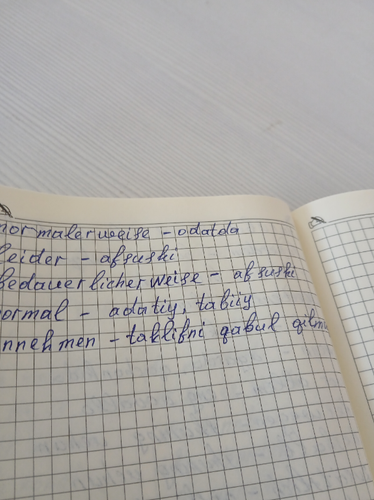 normalerweise - odatda
leider - afsuski
Bedauerlicherweise - afsuski
normal - adatiy, tabiiy
annehmen - taklifni qabul qilm